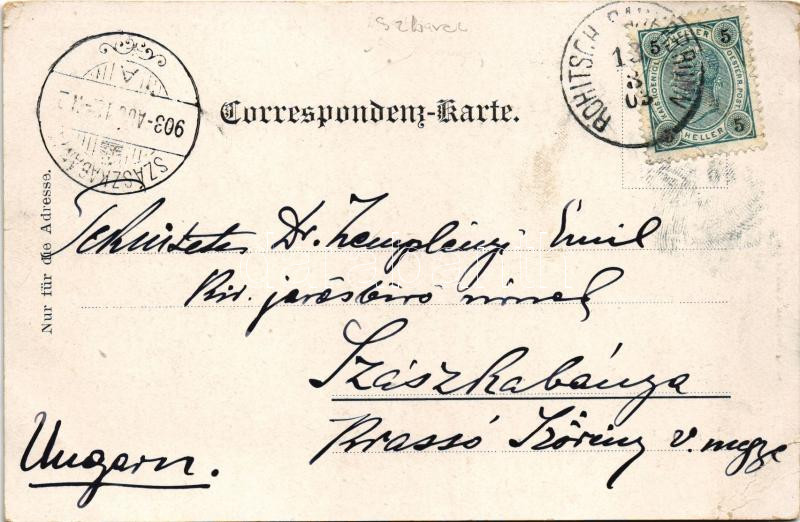 Szkavec
ROHITSCH SAUERBRUNN
13
8
03
5 HELLER 5
KAIS. KOENIGL. OESTERR. POST
5 HELLER 5
903-AUG
SZÁSZKABÁNYA
Correspondenz-Karte.
Nur für die Adresse.
Tekintetes Dr. Zemplényi Emil
Kir. járásbíró úrnak
Szászkabánya
Krassó Szörény v. megye
Ungarn.